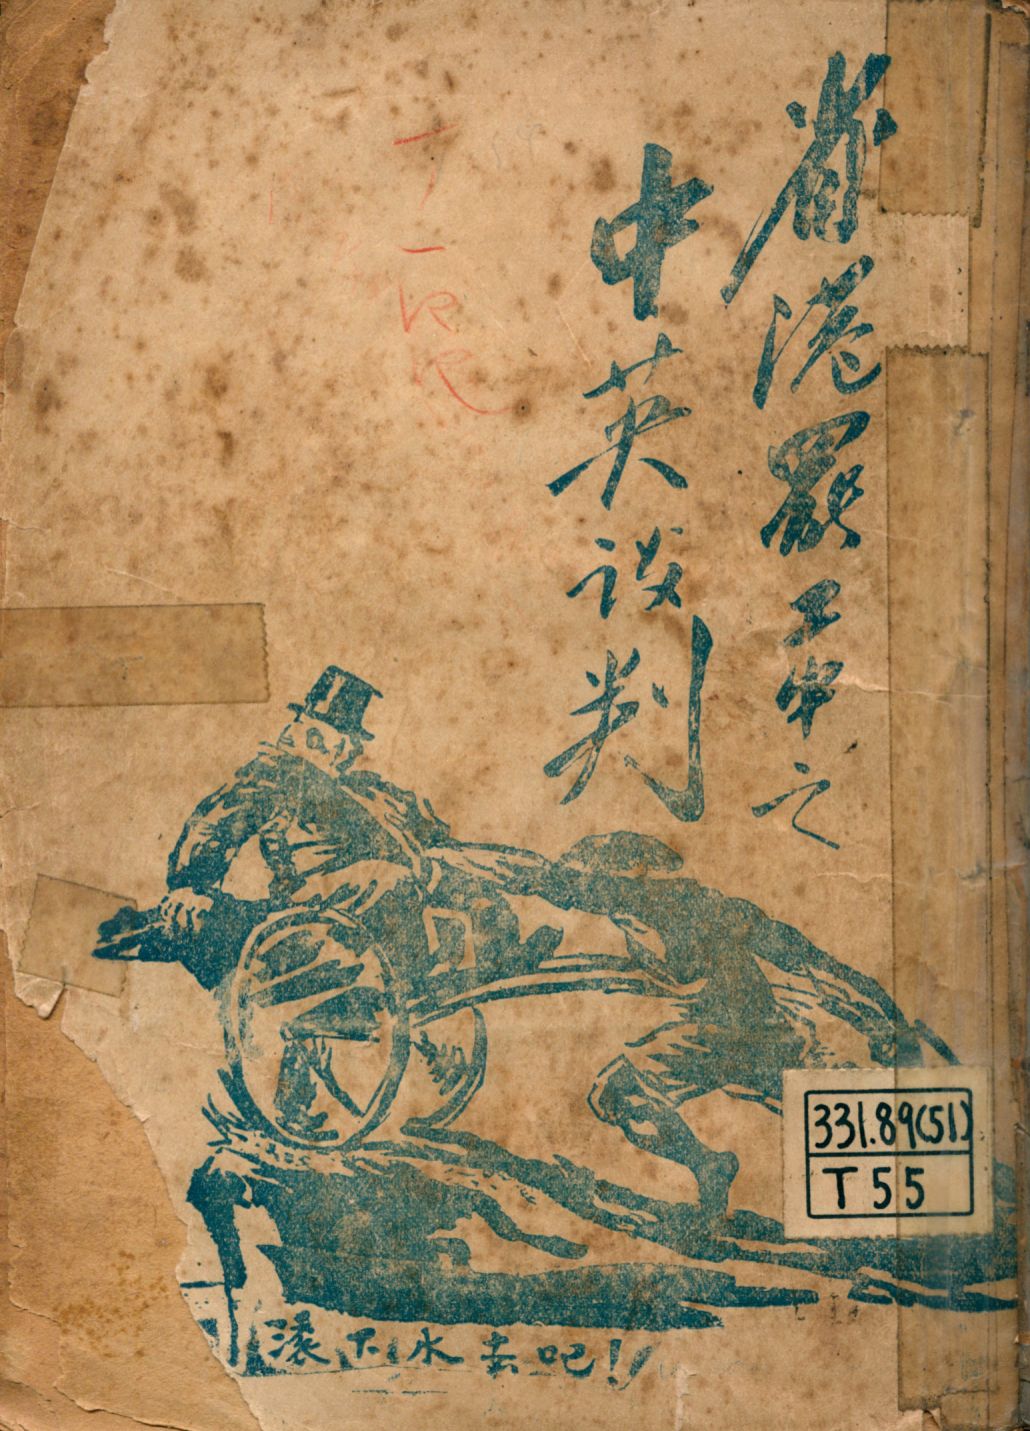 省港罷工中之
中英談判
滾下水去吧！
331.89(51)
T55